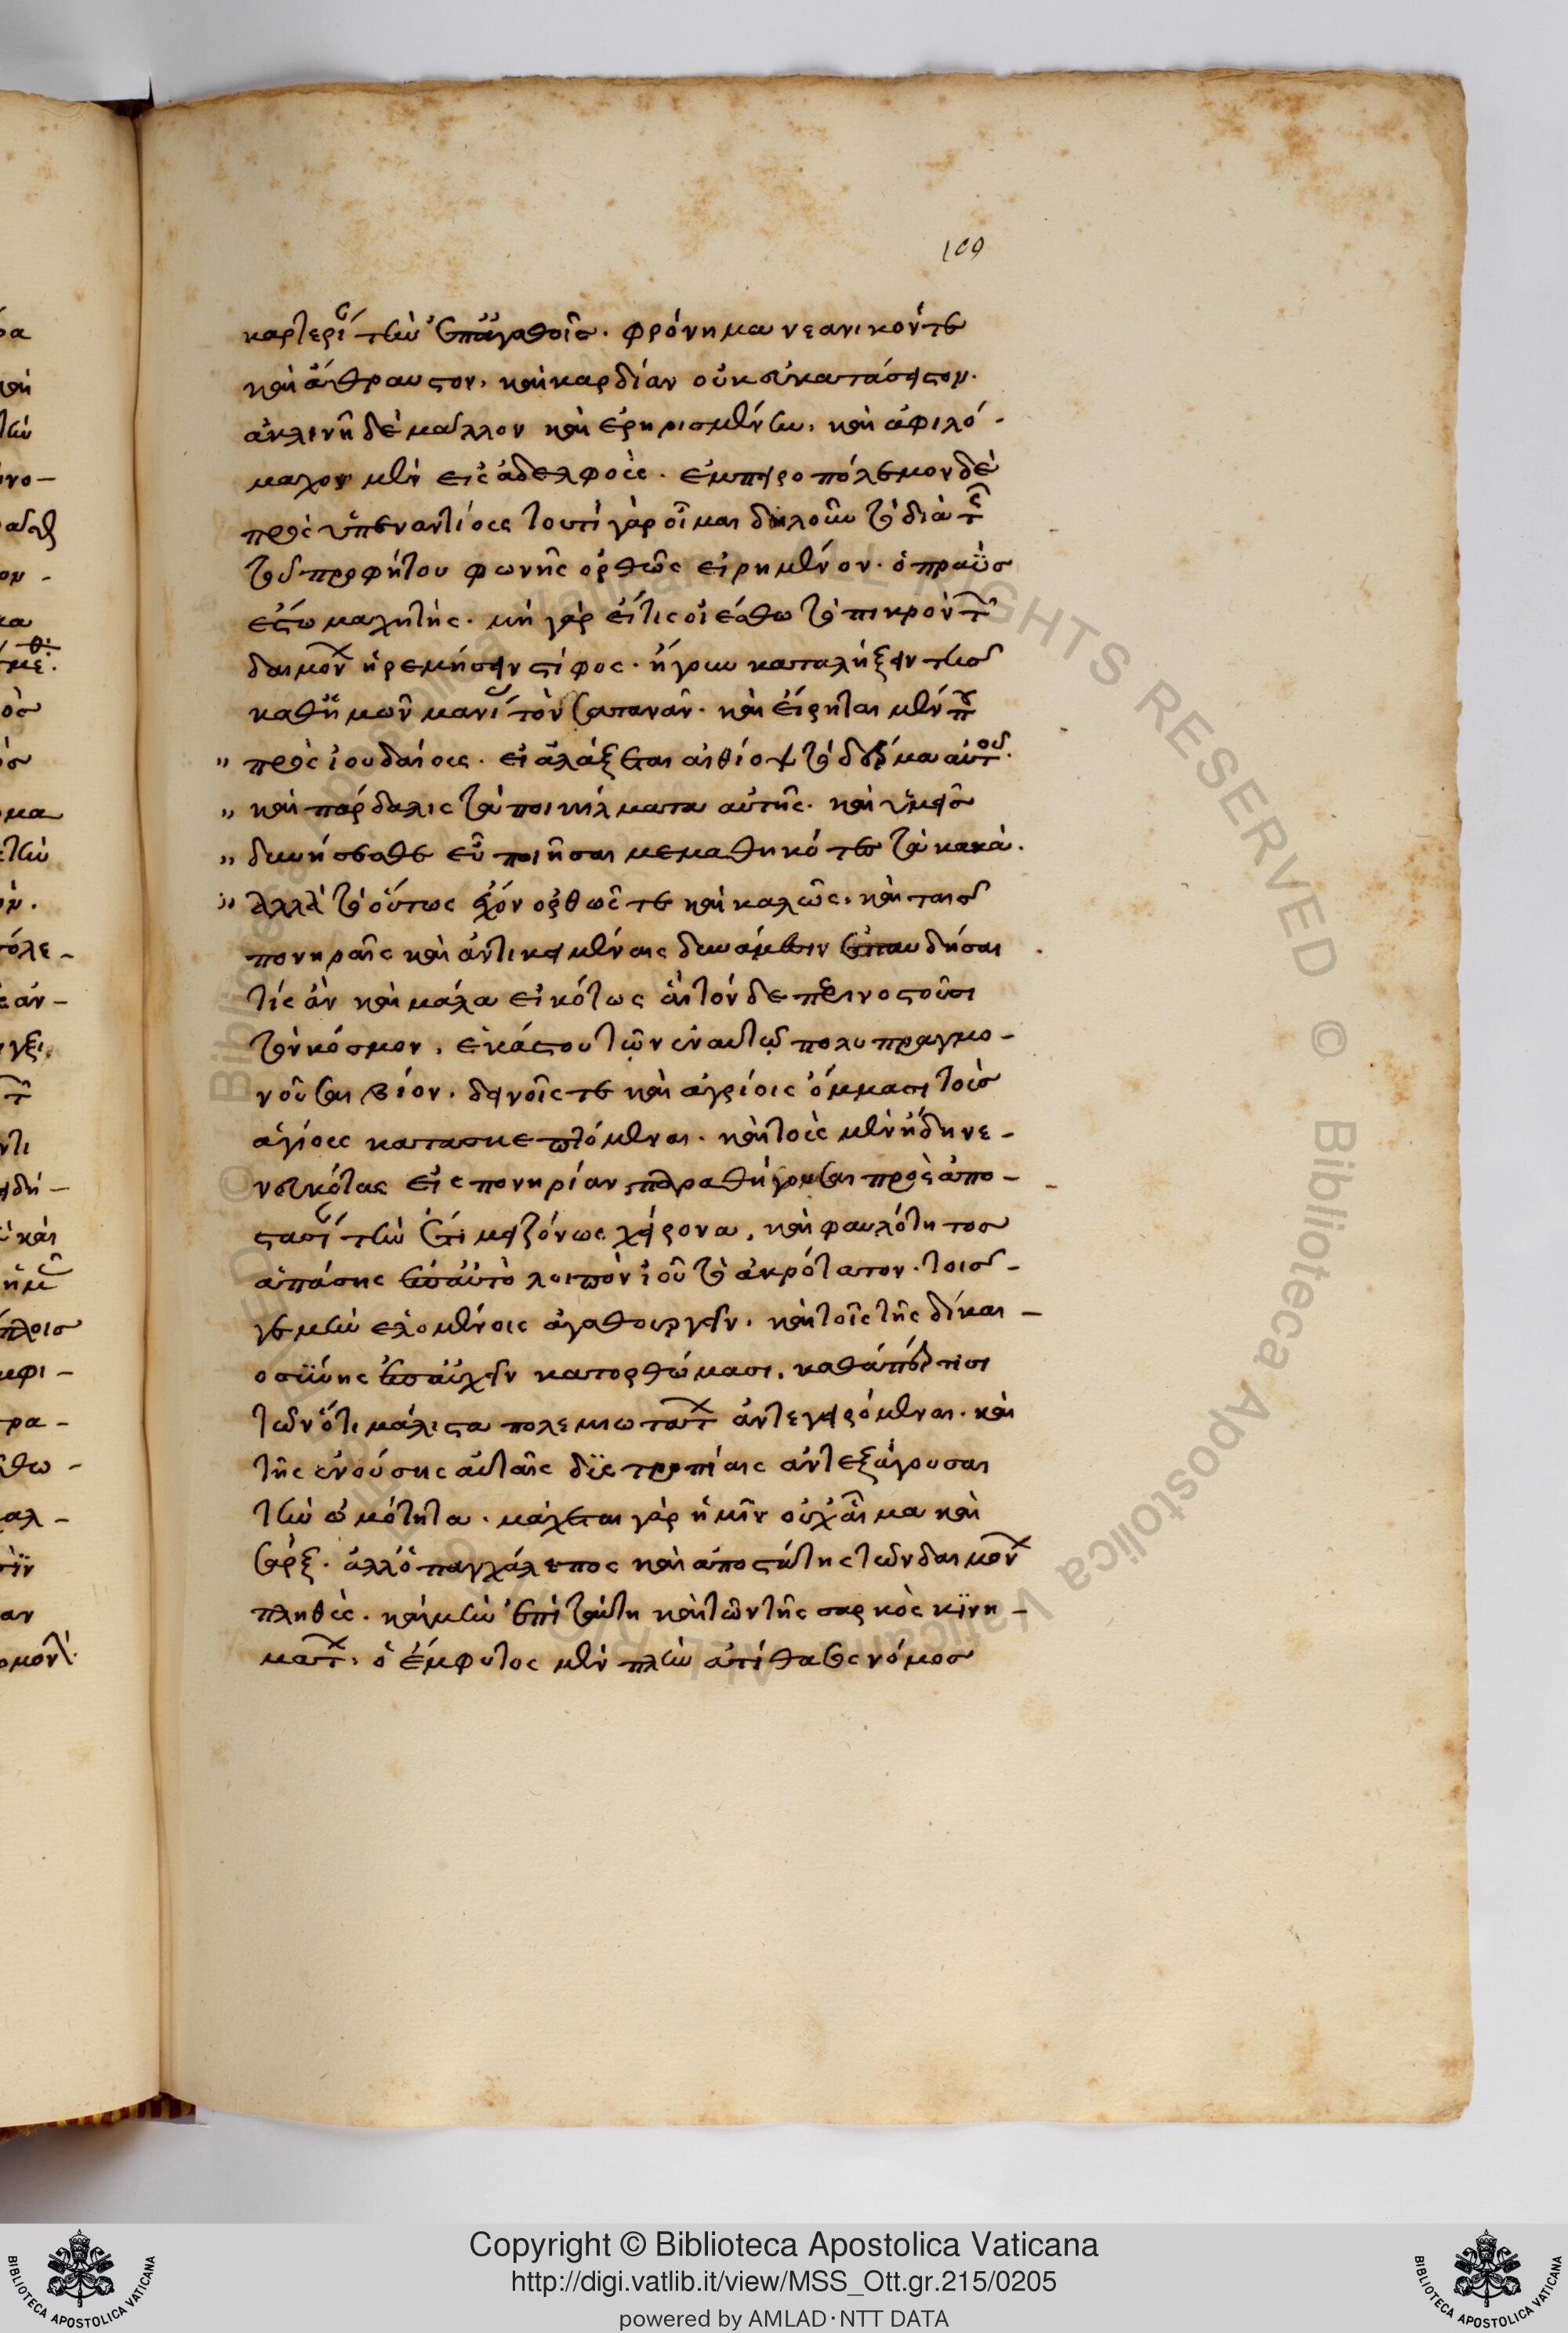 109
καρτερίαν τὴν ἐπ' ἀγαθοῖς. φρόνημα νεανικόν τε
καὶ ἄθραυστον, καὶ καρδίαν οὐκ εὐκατάσειστον.
ἀκλινῆ δὲ μᾶλλον καὶ ἐρηρισμένην, καὶ ἀφιλό-
μαχον μὲν εἰς ἀδελφοὺς. ἐμπειροπόλεμον δὲ
πρὸς ὑπεναντίους τουτὶ γὰρ οἶμαι δηλοῦν τὸ διὰ τῆς
τοῦ προφήτου φωνῆς ὀρθῶς εἰρημένον. ὁ πραΰς
ἔστω μαχητής. μὴ γὰρ δή τις οἰέσθω τὸ πικρὸν τῶν
δαιμόνων ἠρεμήσειν στίφος. ἤγουν καταλήξειν τῆς
καθ' ἡμῶν μανίας τὸν σατανᾶν. καὶ εἴρηται μέν που
" πρὸς ἰουδαίους. εἰ ἀλάξεται αἰθίοψ τὸ δέρμα αὐτοῦ.
" καὶ πάρδαλις τὰ ποικίλματα αὐτῆς. καὶ ὑμεῖς
" δυνήσεσθε εὖ ποιῆσαι μεμαθηκότες τὰ κακά.
" ἀλλὰ τὸ οὕτως ἔχον ὀρθῶς τε καὶ καλῶς, καὶ ταῖς
πονηραῖς καὶ ἀντικειμέναις δυνάμεσιν
τίς ἂν καὶ μάλα εἰκότως αἳ τόνδε περινοστοῦσι
τὸν κόσμον, ἑκάστου τῶν ἐν αὐτῷ πολυπραγμο-
νοῦσαι βίον. δεινοῖς τε καὶ ἀγρίοις ὄμμασι τοὺς
ἁγίους κατασκεπτόμεναι. καὶ τοὺς μὲν ἤδη νε-
νευκότας εἰς πονηρίαν, παραθήγουσαι πρὸς ἀπο-
στασίαν τὴν ἔτι μειζόνως χείρονα, καὶ φαυλότητος
ἁπάσης ἐπ' αὐτὸ λοιπὸν ἰοῦσαι τὸ ἀκρότατον. τοῖς
γε μὴν ἑλομένοις ἀγαθουργεῖν. καὶ τοῖς τῆς δικαι-
οσύνης ἐπαυχεῖν κατορθώμασι, καθάπερ τισὶ
τῶν ὅτι μάλιστα πολεμιωτάτων ἀντεγειρόμεναι. καὶ
τῆς ἐνούσης αὐταῖς δυστροπίας ἀντεξάγουσαι
τὴν ὠμότητα. μάχεται γὰρ ἡμῖν οὐχ αἷμα καὶ
σάρξ. ἀλλ' ὁ παγχάλεπος καὶ ἀποστάτης τῶν δαιμόνων
πληθὺς. καὶ μὴν ἐπὶ ταύτῃ καὶ τῶν τῆς σαρκὸς κινη-
μάτων, ὁ ἔμφυτος μὲν πλὴν ἀτίθασος νόμος
Copyright © Biblioteca Apostolica Vaticana
http://digi.vatlib.it/view/MSS_Ott.gr.215/0205
powered by AMLAD · NTT DATA